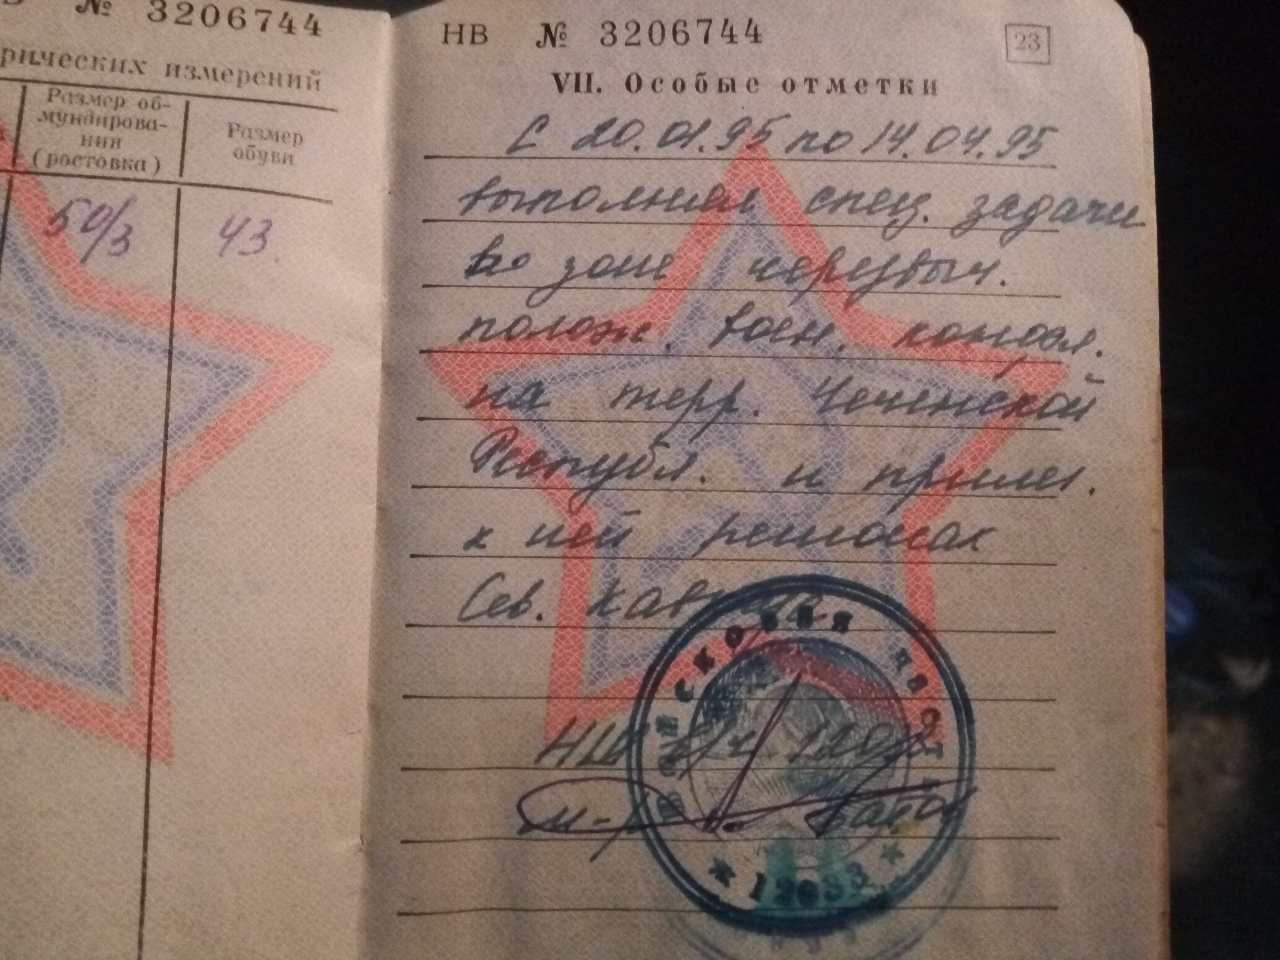 № 3206744
рических измерений
Размер об-
мундирова-
ния
(ростовка)
Размер
обуви
50/3
43
НВ № 3206744
23
VII. Особые отметки
С 20.01.95 по 14.04.95
выполнял спец. задачи
в зоне чрезвыч.
полож. воен.
на терр. Чеченской
Республ. и прилег.
к ней регионах
Сев. Кавказа
НШ в/ч
м-р
ВОЙСКОВАЯ ЧАСТЬ
* 12033 *